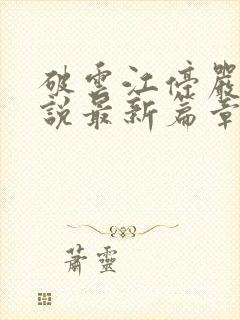 破雲江停嚴
說最新篇章
蕭靈